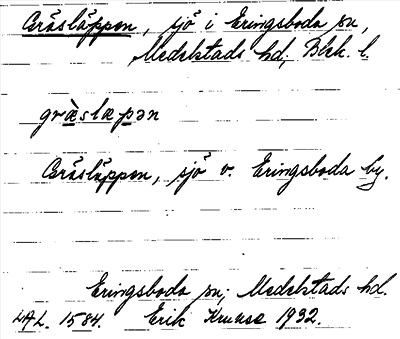 Gräsläppen, sjö i Eringsboda sn,
Medelstads hd, Blek. l.
græslæpən
Gräsläppen, sjö v. Eringsboda by.
Eringsboda sn; Medelstads hd.
LAL. 1584. Erik Kruuse 1932.